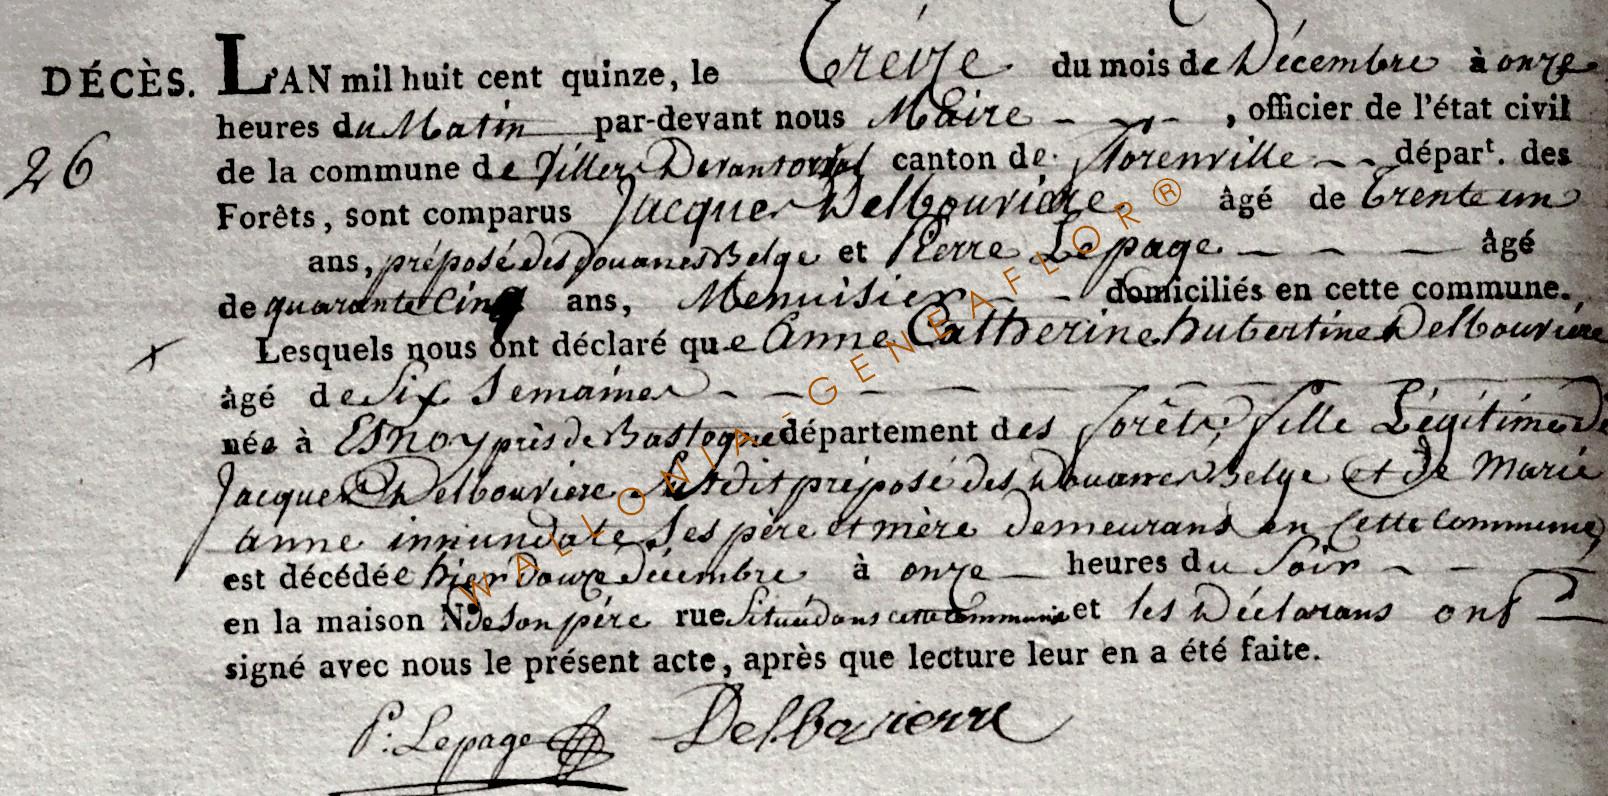 DÉCÈS. L'AN mil huit cent quinze, le Treize du mois de Décembre à onze
heures du Matin par-devant nous Maire , officier de l'état civil
26 de la commune de Villers Devant orval canton de florenville départ. des
Forêts, sont comparus Jacques Delbouviere âgé de trente un
ans, préposé des Douanes Belge et Pierre Lepage âgé
de quarante cinq ans, Menuisier domiciliés en cette commune.
x Lesquels nous ont déclaré que Anne Catherine hubertine Delbouviere
âgé de Six Semaines
née à Esnoy près de Bastogne département des forêts, fille Légitime De
Jacques Delbouviere Susdit préposé des Douanes Belge et de Marie
anne innundate Ses père et mère demeurans en Cette Commune,
est décédée hier Douze décembre à onze heures du Soir
en la maison N. de Son père rue Située dans cette commune et les Déclarans ont
signé avec nous le présent acte, après que lecture leur en a été faite.
P. Lepage Delbovierre
WALLONIA - GENEAFLOR ®